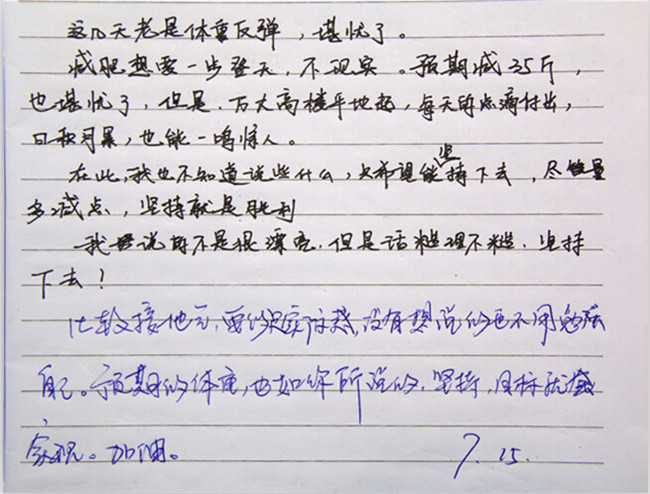 这几天老是体重反弹，堪忧了。
减肥想要一步登天，不现实。预期减35斤，
也堪忧了，但是，万丈高楼平地起，每天的点滴付出，
日积月累，也能一鸣惊人。
在此，我也不知道说些什么，只希望能坚持下去，尽能量
多减点，坚持就是胜利
我说的不是很漂亮，但是话糙理不糙，坚持
下去！
比较接地气，要的实际，没有想说的也不用勉强
自己。预期的体重，也如你所说的，坚持，目标就
会实现。加油。
7.15.